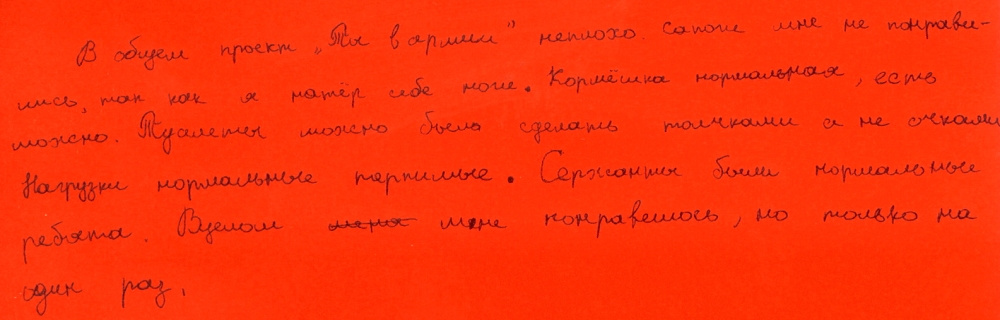 В общем проект „Ты в армии" неплохо. сапоги мне не понрави-
лись, так как я натёр себе ноги. Кормёшка нормальная, есть
можно. Туалеты можно было сделать толчками а не очками
Нагрузки нормальные терпимые. Сержанты были нормальные
ребята. Вцелом меня мне понравелось, но только на
один раз.